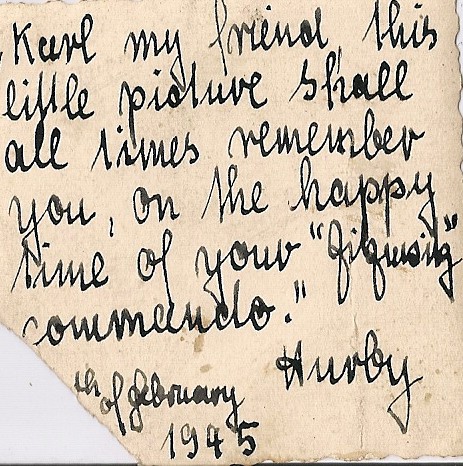 Karl my friend this
little picture shall
all times remember
you, on the happy
time of your
commando."
Hurby
th of february
1945